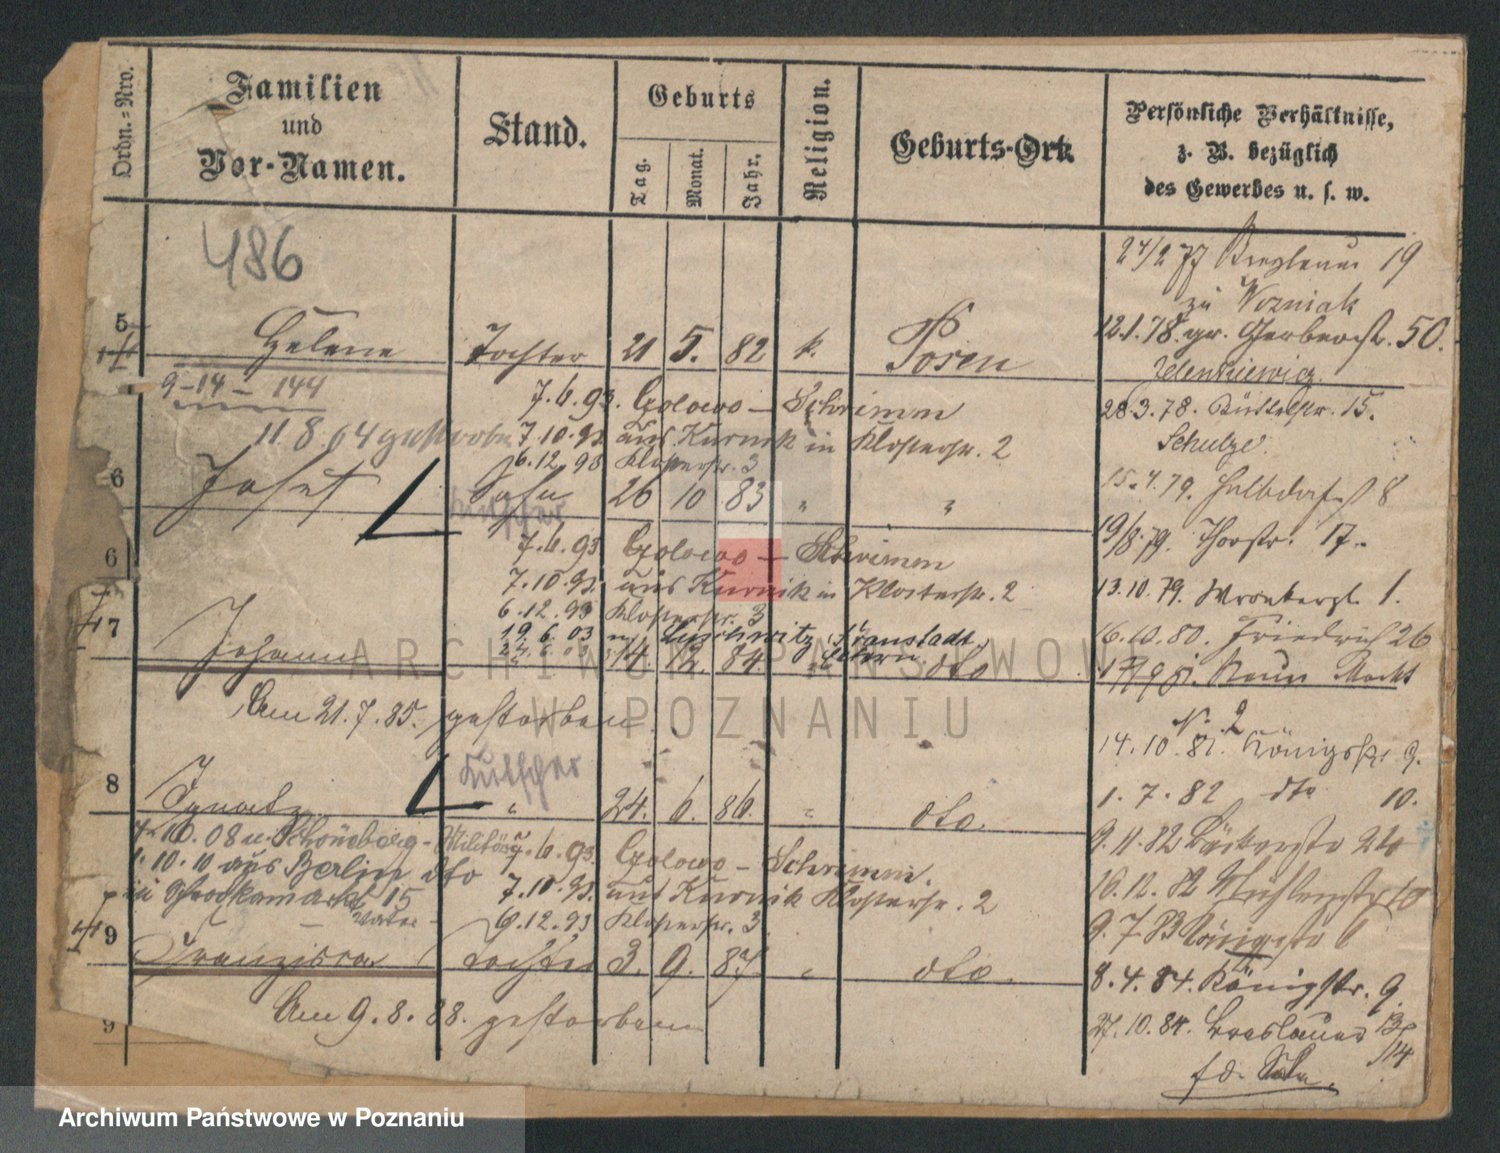 Ordn.=Nro.
Familien
und
Vor-Namen.
Stand.
Geburts
Tag.
Monat.
Jahr.
Religion.
Geburts-Ort.
Persönliche Verhältnisse,
z. B. bezüglich
des Gewerbes u. s. w.
486
5
Helene Tochter 21 5. 82 k. Posen
9-14-144
7.6.93. Golowo - Schrimm
11.8.04 gestorben 7.10.93 aus Kurnik in Klosterstr. 2
6.12.93 Klosterstr. 3
6
Josef Sohn 26 10 83 " "
Kutscher
6
7.6.93 Golowo - Schrimm
7.10.93. aus Kurnik in Klosterstr. 2
6.12.93 Klosterstr. 3
19.6.03 n. Luschwitz Fraustadt
24.6.03
7
Johann 14. 12. 84. " dto
Am 21.7.85. gestorben
Kutscher
8
Ignatz " 24. 6. 86. " dto.
4.10.08 n. Schöneberg - Militär
7.6.93. Golowo - Schrimm.
1.10.10 aus Berlin dto
7.10.93. aus Kurnik Klosterstr. 2
in 15
Vater
6.12.93 Klosterstr. 3
9
Franziska Tochter 3. 9. 87 " dto.
Am 9.8.88. gestorben
9
24/2 77 Breslauer 19
zu Wozniak
12.1.78 gr. Gerberstr. 50.
Zelenkiewicz.
28.3.78. Büttelstr. 15.
Schulze.
15.4.79. Halbdorfstr 8
19/8.79. Thorstr. 17.
13.10.79. Wronkerstr. 1.
16.10.80. Friedrich 26
81. Neuer Markt
N. 2
14.10.81. Königsstr 9.
1.7.82 dto 10.
9.11.82 Bäckerstr 24
16.12.82 Mühlenstr 10
9.7.83 Königstr 6
8.4.84. Königstr. 9
27.10.84. Breslauer 13/14
ARCHIWUM PAŃSTWOWE
W POZNANIU
Archiwum Państwowe w Poznaniu